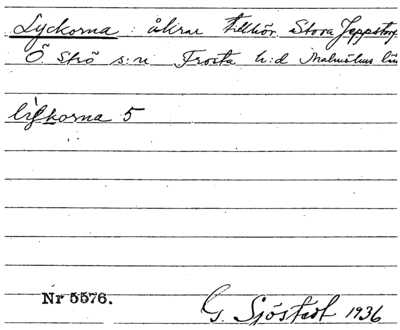 Lyckorna : åkrar tillhör. Stora Jeppstorp
Ö Strö s:n Frosta h:d Malmöhus län
5
Nr 5576.
G. Sjöstedt 1936